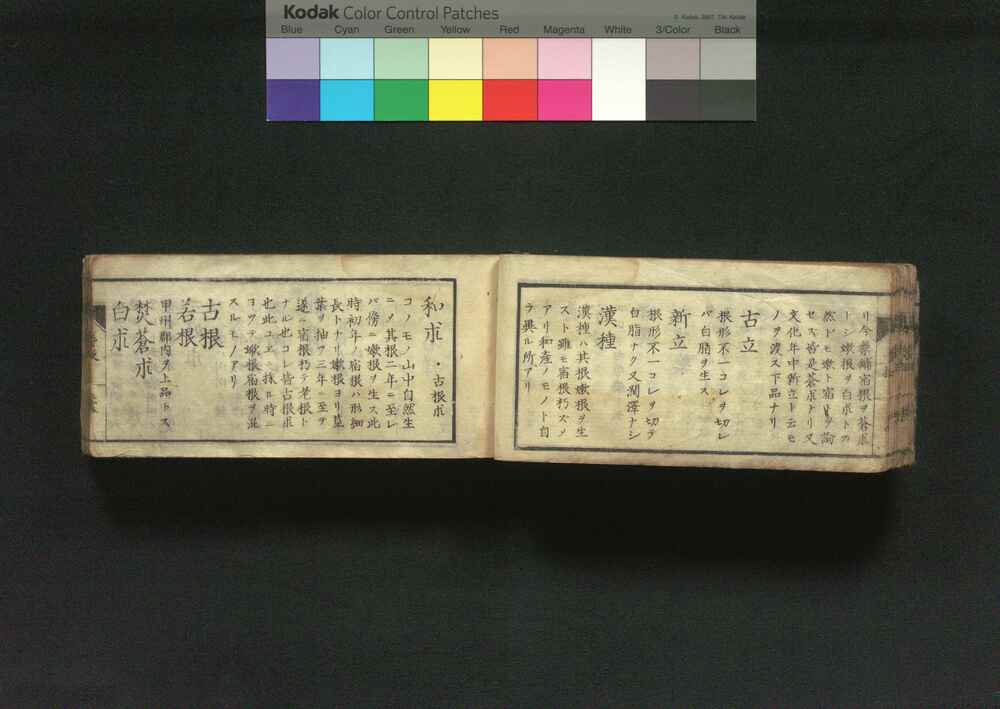 Kodak Color Control Patches
© Kodak, 2007, TM: Kodak
Blue Cyan Green Yellow Red Magenta White 3/Color Black
トシ嫩根ヲ白朮トカ
セス皆是蒼朮ナリ又
文化年中新立ト云モ
ノヲ渡ス下品ナリ
古立
根形不一コレヲ切レ
バ白脂ヲ生ス
新立
根形不一コレヲ切テ
白脂ナク又潤澤ナシ
漢種
漢種ハ其根嫩根ヲ生
スト雖モ宿根朽ズメ
アリ和産ノモノト自
ラ異ル所アリ
和朮 ・古根朮
コノモノ山中自然生
ニメ其根二年ニ至レ
バ傍ニ嫩根ヲ生ス此
時初年ノ宿根ハ形細
長トナリ嫩根ヨリ莖
葉ヲ抽ヲ三年ニ至テ
遂ニ宿根朽テ老根ト
ナル也コレ皆古根朮
也此ユエニ採ル時ニ
ヨツテ嫩根宿根ヲ混
スルモノアリ
古根
若根
甲州郡内ヲ上品トス
焚蒼朮
白朮